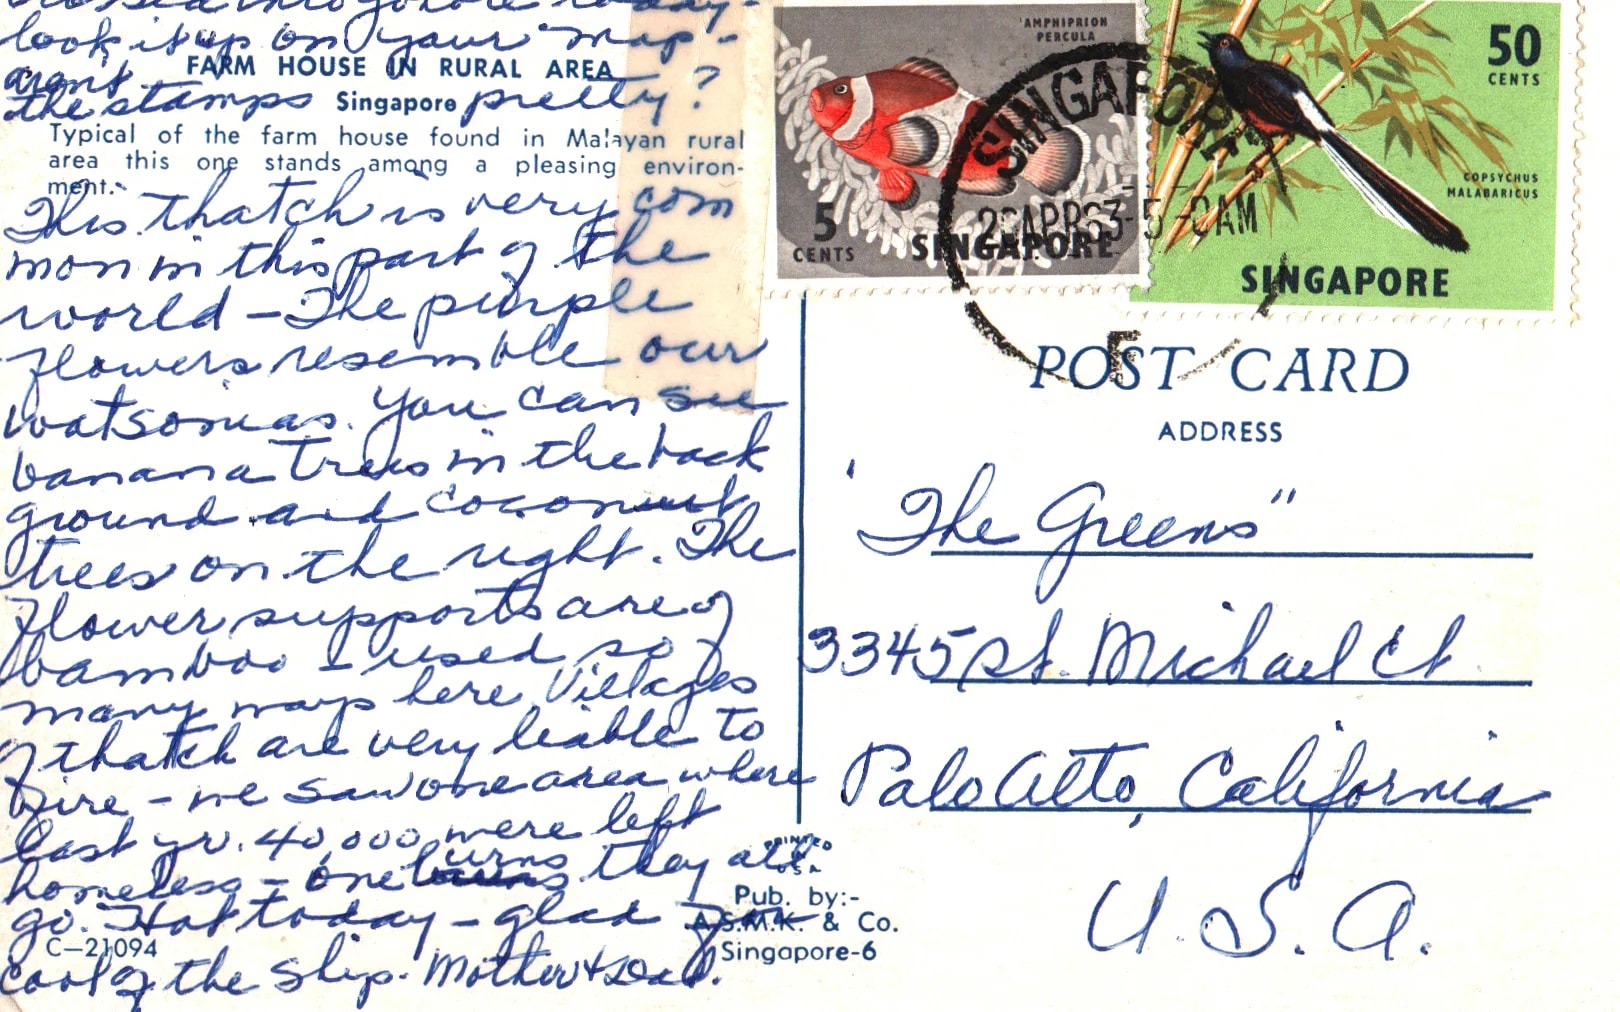 look it up on your map -
arent
the stamps pretty?
FARM HOUSE IN RURAL AREA
Singapore
Typical of the farm house found in Malayan rural
area this one stands among a pleasing environ-
ment.
This thatch is very com
mon in this part of the
world - The purple
flowers resemble our
watsonias. You can see
banana trees in the back
ground and coconut
trees on the right. The
flower supports are of
bamboo - used so
many ways here. Villages
of thatch are very liable to
fire - we saw one area where
last yr. 40,000 were left
homeless - one burns they all
go. Hot today - glad for
cool of the ship. Mother & Dad.
C-21094
PRINTED
USA
Pub. by:-
A.S.M.K. & Co.
Singapore-6
AMPHIPRION
PERCULA
5
CENTS
SINGAPORE
50
CENTS
COPSYCHUS
MALABARICUS
SINGAPORE
SINGAPORE
APR 63
F
POST CARD
ADDRESS
'The Greens"
3345 St. Michael Ct
Palo Alto, California
U.S.A.